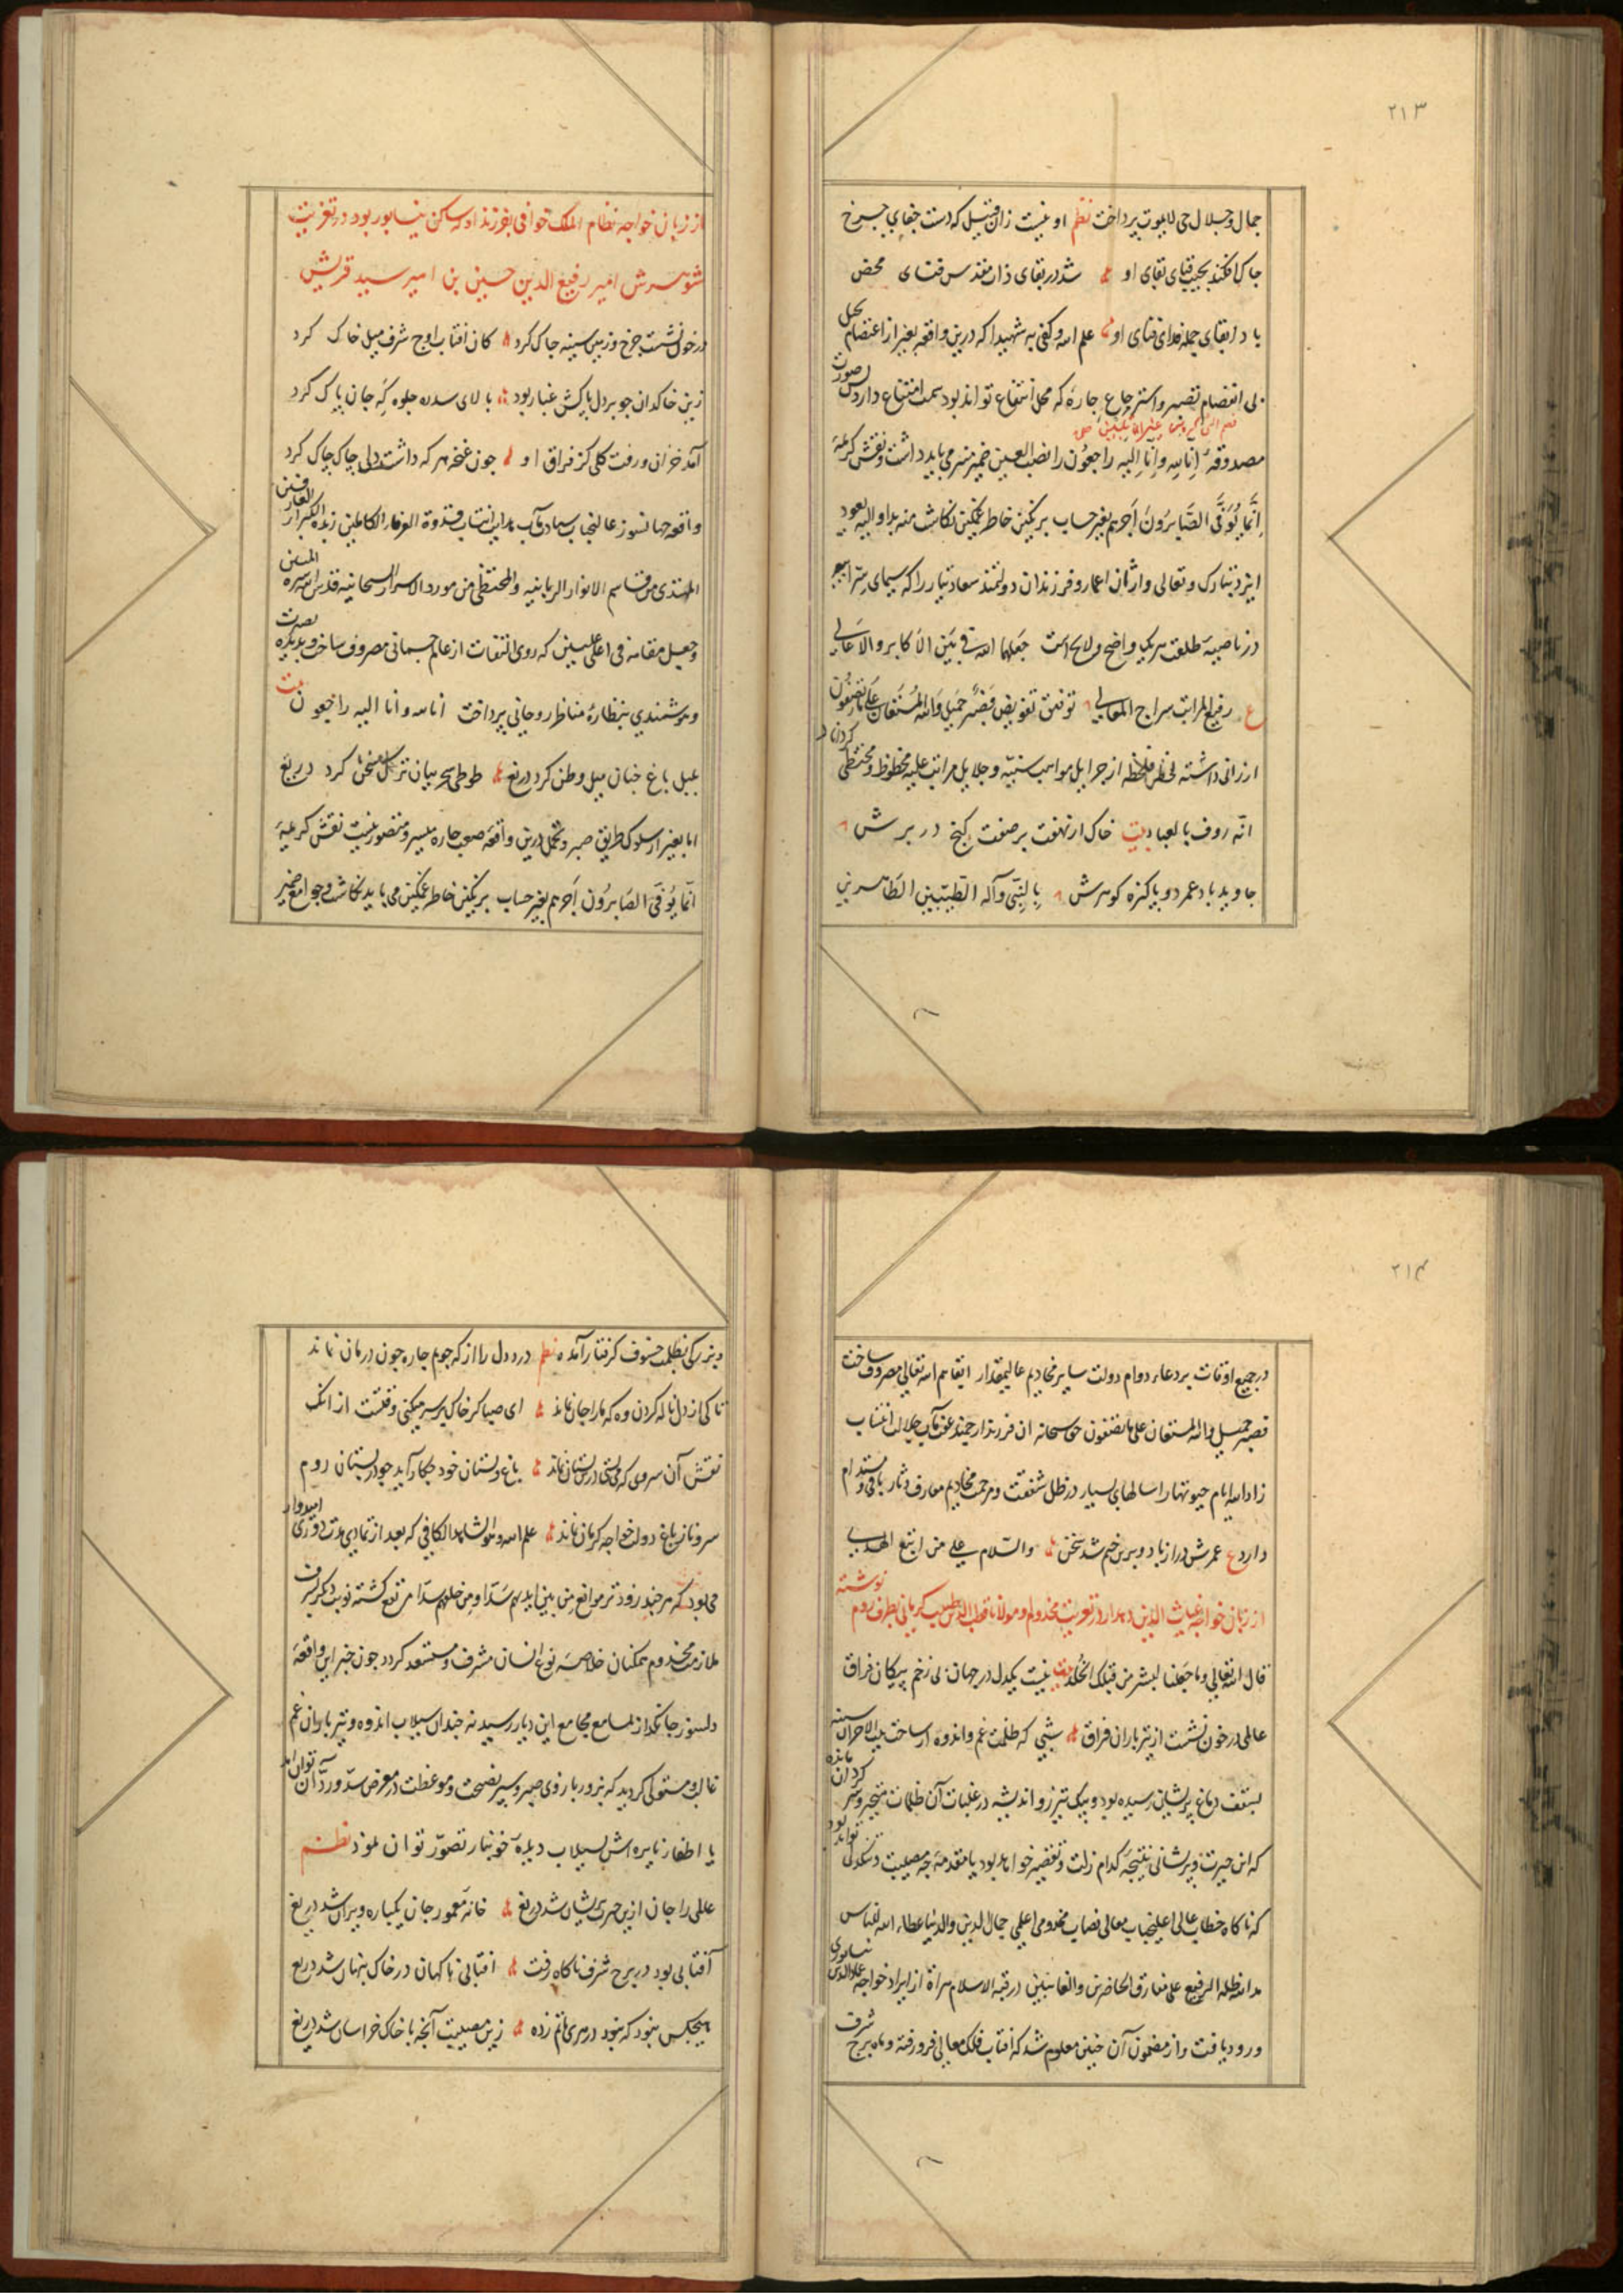 ۲۱۳
جمال و جلال حی لایموت پرداخت نظم او نیست زان قبیل که دست جفای چرخ
چاک افکند بجیب قبای بقای او شد در بقای ذات مقدس فنای محض
باد ابقای جمله فدای فنای او علم الله و کفی به شهیدا که درین واقعه بغیر از اعتصام بحبل
بی انفصام تصبر و استرجاع چاره که محل انتفاع تواند بود سمت امتناع دارد صورت
مصدوقه إنا لله وإنا إلیه راجعون را نصب العین ضمیر منیر می باید داشت و نقش کریمه
إنما یوفی الصابرون أجرهم بغیر حساب بر نگین خاطر غمگین نگاشت منه بدا و الیه یعود
ایزد تبارک و تعالی وارثان اعمار و فرزندان دولتمند سعادتیار را که سیمای
در ناصیه طلعت هر یک واضح و لایح است جعلها الله فی بین الاکابر و الاعالی
ع رفیع المراتب سراج المعالی توفیق تفویض فصبر جمیل والله المستعان علی ما تصفون
ارزانی داشته لحظه فلحظه از جزایل مواهب سنیه و جلایل مراتب علیه محظوظ و محتظی کرداناد
انه رؤف بالعباد بیت خاک ار نهفت بر صفت گنج در برش
جاوید باد عمر دو پاکیزه کوهرش بالنبی وآله الطیبین الطاهرین
از زبان خواجه نظام الملک خوافی بفرزند او که ساکن نیسابور بود در تعزیت
شوهرش امیر رفیع الدین حسین بن امیر سید قریش
در خون نشست چرخ و زمین سینه چاک کرد کان افتاب اوج شرف میل خاک کرد
زین خاکدان چو بر دل پاکش غبار بود بالای سدره جلوه که جان پاک کرد
آمد خزان و رفت کلی کز فراق او چون غنچه هر که داشت دلی چاک چاک کرد
واقعه جهانسوز عالیجناب سیادت مآب هدایت انتساب قدوة العرفاء الکاملین زبدة الکبراء العارفین
المهتدی من مقاسم الانوار الربانیه والمحتظی من موارد الاسرار السبحانیه قدس الله سره
وجعل مقامه فی اعلی علیین که روی التفات از عالم جسمانی مصروف ساخت و بدیده بصیرت
و هوشمندی بنظاره مناظر روحانی پرداخت انا لله وانا الیه راجعون بیت
بلبل باغ جنان میل وطن کرد دریغ طوطی سحر بیان ترک سخن کرد دریغ
اما بغیر از سلوک طریق صبر و تحمل درین واقعه صعب چاره میسر و متصور نیست نقش کریمه
انما یوفی الصابرون أجرهم بغیر حساب بر نگین خاطر غمکین می باید نکاشت و جوامع ضمیر
۲۱۴
در جمیع اوقات بر دعاء دوام دولت سایر مخادیم عالیمقدار ابقاهم الله تعالی مصروف ساخت
فصبر جمیل والله المستعان علی ما تصفون حق سبحانه ان فرزند ارجمند عفت مآب جلالت انتساب
زاد الله ایام حیوتها را سالهای بسیار در ظل شفقت و مرحمت مخادیم معارف دثار باقی و مستدام
دارد ع عمرش دراز باد و برین ختم شد سخن والسلام علی من اتبع الهدی
از زبان خواجه غیاث الدین دهدار در تعزیت مخدوم او مولانا قطب الدین طبیب کرمانی بطرف روم نوشته
قال الله تعالی وما جعلنا لبشر من قبلک الخلد بیت نیست یکدل در جهان بی زخم پیکان فراق
عالمی در خون نشست از تیر باران فراق شبی که ظلمت غم و اندوه از ساحت بیت الاحزان سینه
بسقف دماغ پریشان رسیده بود و پیک تیز رو اندیشه در غلبات آن ظلمات متحیر و سر کردان مانده
که این حیرت و پریشانی نتیجه کدام زلت و تقصیر خواهد بود یا مقدمه چه مصیبت و تنکدلی تواند بود
که ناکاه خطاب عالی اعلیجناب معالی نصاب مخدومی اعلی جمال الدین والدنیا عطاء الله للناس
مد الله ظله الرفیع علی مفارق الحاضرین والغائبین در قبة الاسلام هراة از ایراد خواجه علاءالدین نیسابوری
ورود یافت و از مضمون آن چنین معلوم شد که افتاب فلک معالی فرو رفته و ماه برج شرف
و بزرکی بظلمت خسوف کرفتار آمده نظم درد دل را از که جویم چاره چون درمان نماند
تا کی از دل ناله کردن وه که ما را جان نماند ای صبا کر خاک بر سر میکنی وقتست از انک
نقش آن سروی که می بینی در بستان نماند باغ و بستان خود چکار آید چو در بستان روم
سرو ناز باغ دولت خواجه کرمان نماند علم الله وهو الشاهد الکافی که بعد از تمادی مدت دوری امیدوار
می بود که هر چند زودتر موانع من بین ایدیهم سدا و من خلفهم سدا مرتفع کشته نوبت دیکر بشرف
ملازمت مخدوم همکنان خلاصه نوع انسان مشرف و مستسعد کردد چون خبر این واقعه
دلسوز جانکداز بمسامع مجامع این دیار رسید نه چندان سیلاب اندوه و تیر باران غم
غالب و مستولی کردید که بزور بازوی صبر و سپر نصیحت و موعظت در معرض سد و رد آن توان آمد
یا اطفاء نایره اش بسیلاب دیده خونبار تصور توان نمود نظم
عالمی را جان ازین حسرت پریشان شد دریغ خانه معمور جان یکباره ویران شد دریغ
آفتابی بود در برج شرف ناکاه رفت افتابی ناکهان در خاک پنهان شد دریغ
هیچکس نبود که نبود در هری ماتم زده زین مصیبت آنچه با خاک خراسان شد دریغ